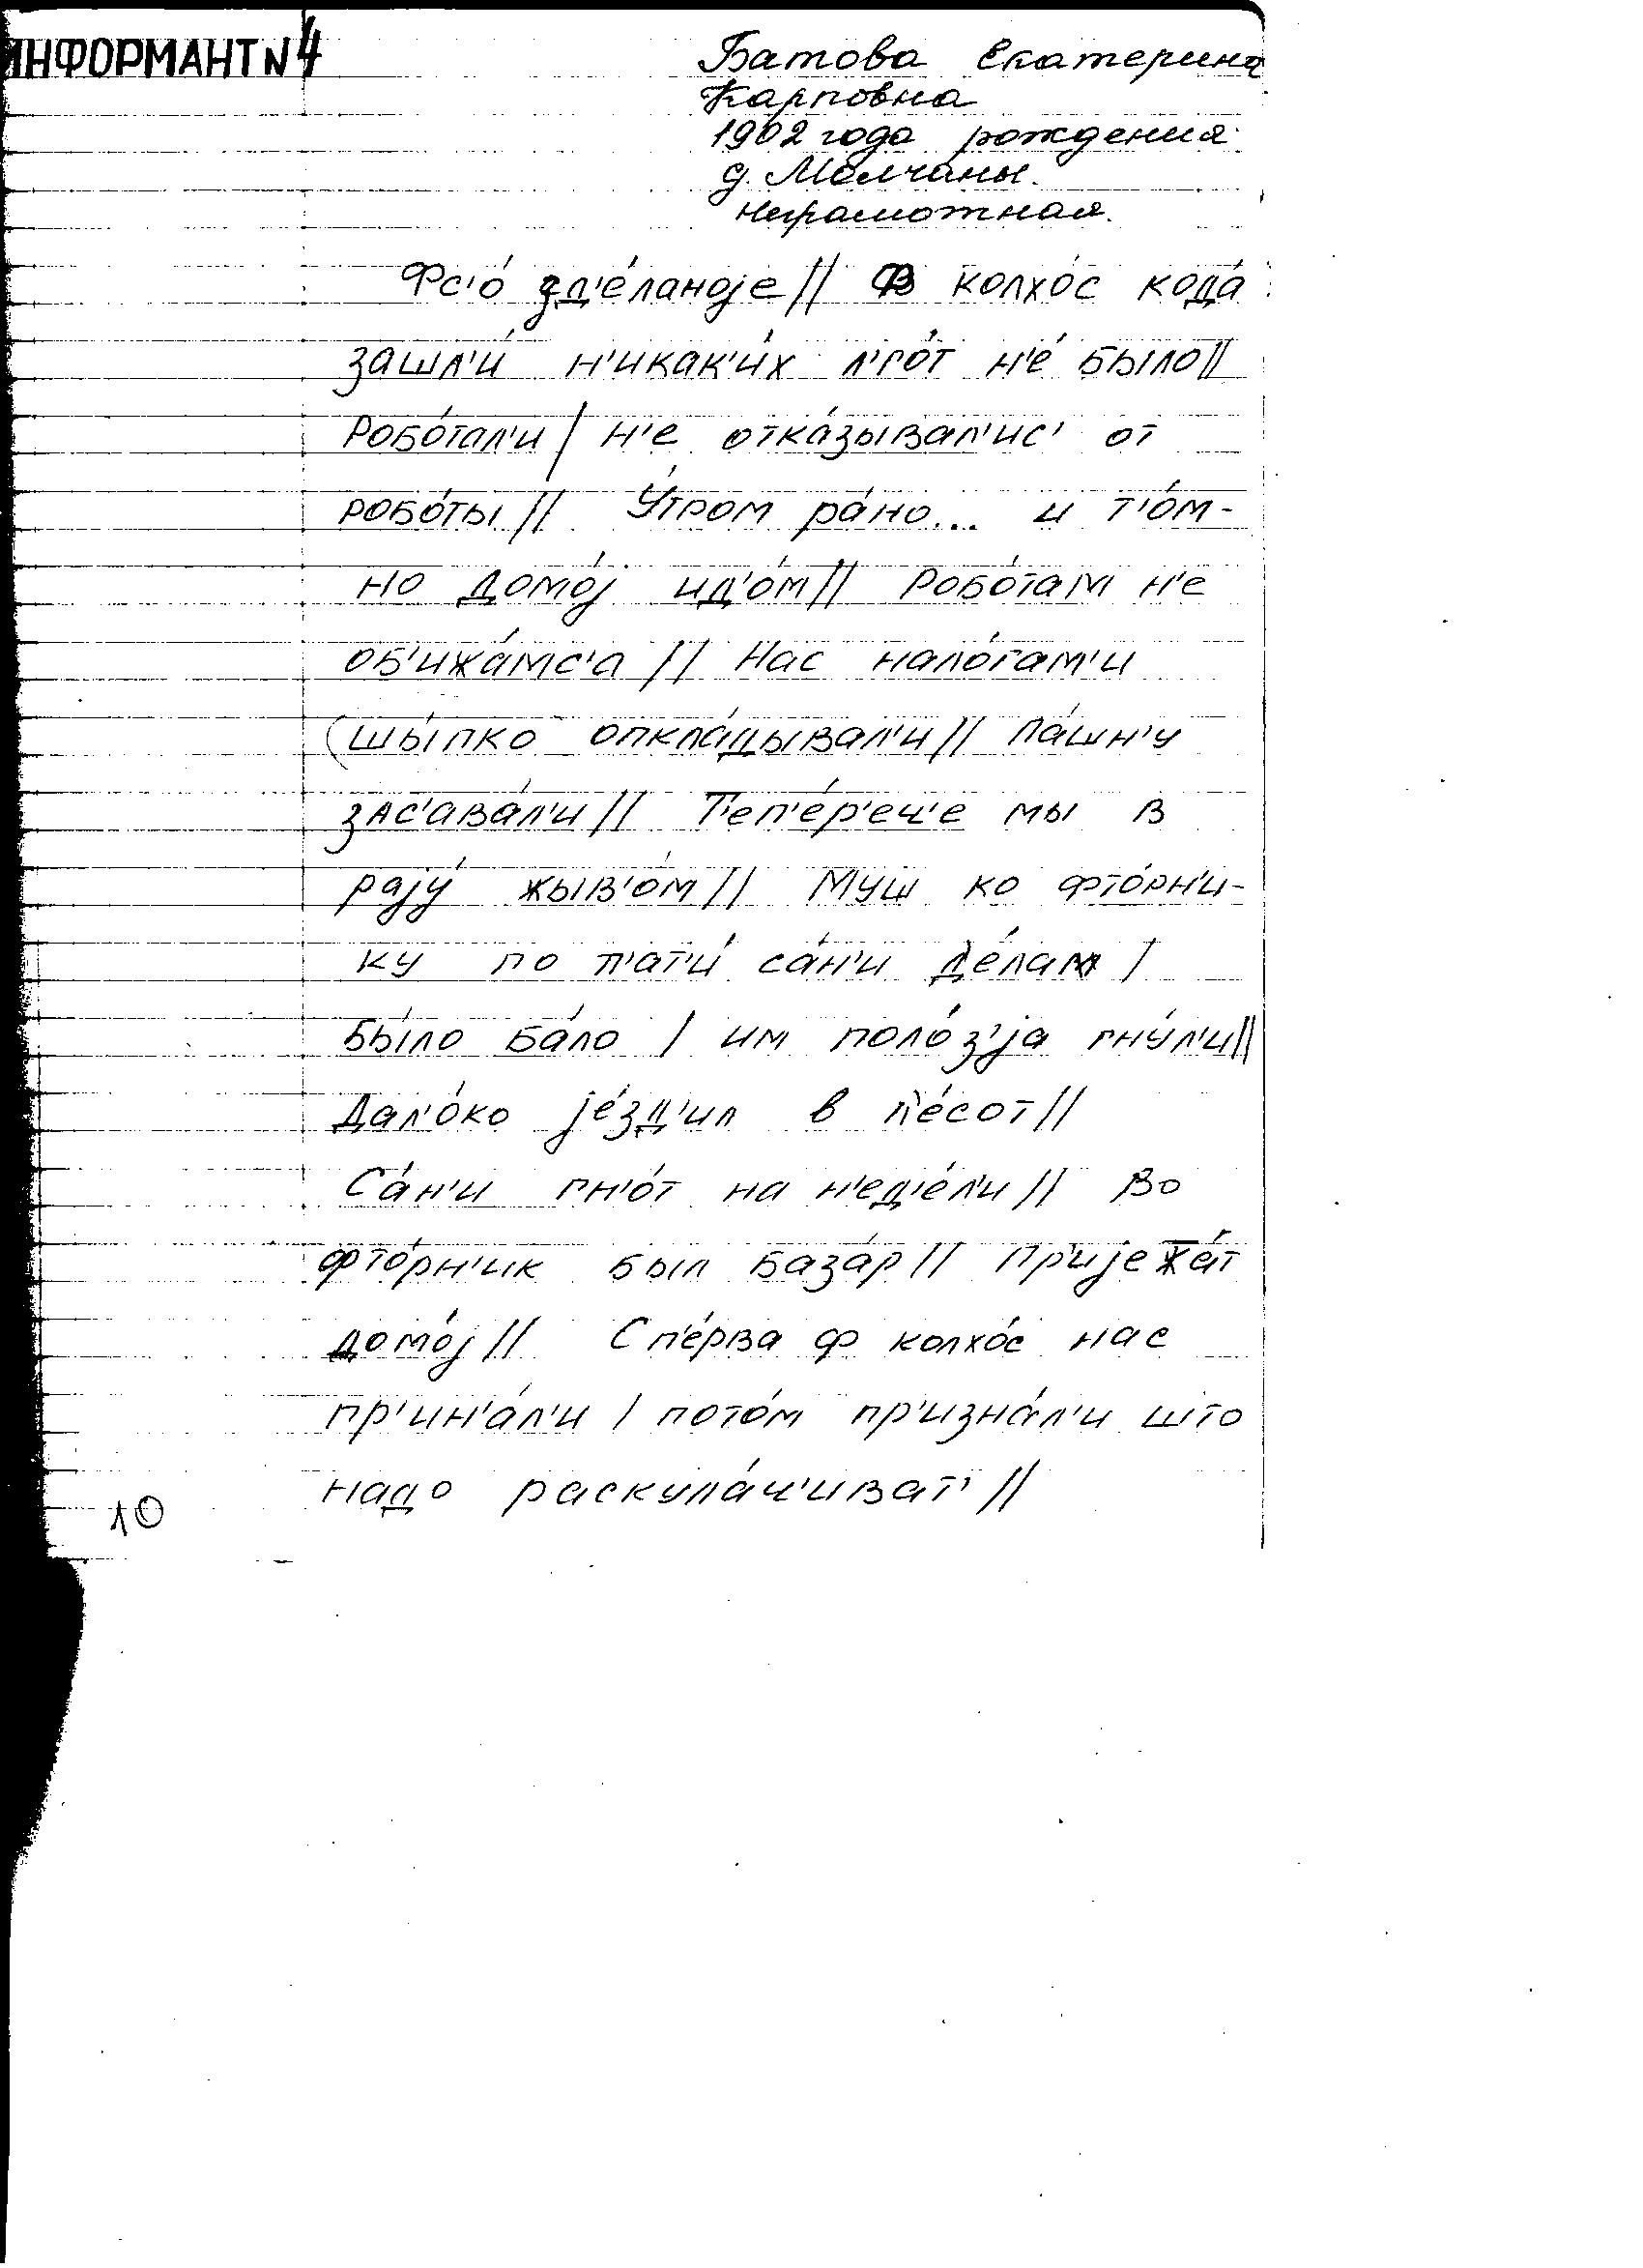 ИНФОРМАНТ N 4
Батова Екатерина
Карповна
1902 года рождения
д. Молчаны.
Неграмотная.
Фс'о́ зд'е́ланоjе // Ф колхо́с кода́
зашл'и́ н'икак'и́х л'го́т н'е́ было //
робо́тал'и / н'е отка́зывал'ис' от
робо́ты // У́тром ра́но... и т'о́м-
но домо́j ид'о́м // Робо́там н'е
об'ижа́мс'а // Нас нало́гам'и
(шы́пко опкла́дывал'и // Па́шн'у
зас'ава́л'и // Т'еп'е́р'еч'е мы в
раjу́ жыв'о́м // Муш ко фто́рн'и-
ку по п'ат'и́ са́н'и де́лам /
бы́ло ба́ло / им поло́з'jа гну́л'и //
Дал'о́ко jе́зд'ил в П'е́сот //
Са́н'и гн'о́т на н'ед'е́л'и // Во
фто́рн'ик был база́р // Пр'иjежа́т
домо́j // Сп'е́рва ф колхо́с нас
пр'ин'а́л'и / пото́м пр'изна́л'и што
надо раскула́ч'иват' //
10